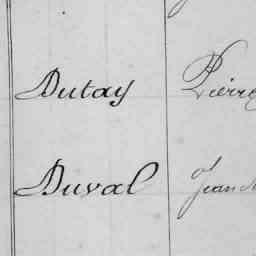 Dutay Pierre
Duval Jean M